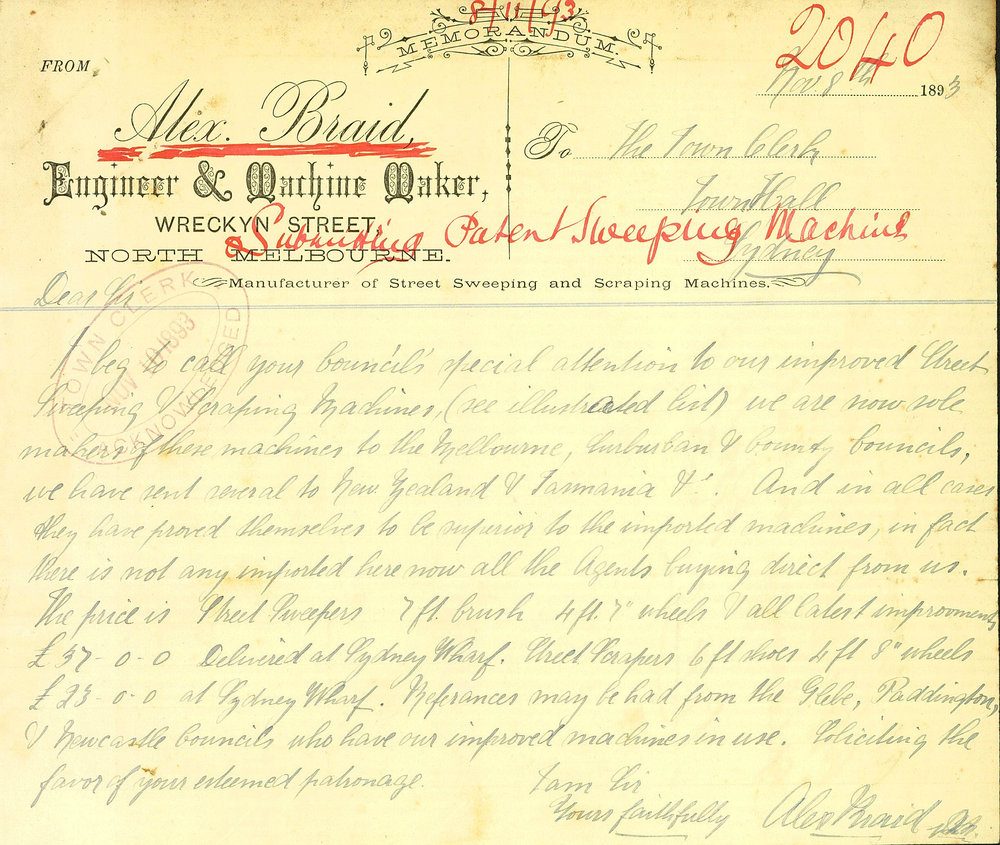 8/11/93
MEMORANDUM.
2040
FROM
Nov. 8th 1893
Alex. Braid,
Engineer & Machine Maker,
WRECKYN STREET,
NORTH MELBOURNE.
To The Town Clerk
Town Hall
Sydney
Submitting Patent Sweeping Machine
Manufacturer of Street Sweeping and Scraping Machines.
TOWN CLERK
NOV 10 1893
ACKNOWLEDGED
Dear Sir
I beg to call your Council's special attention to our improved Street
Sweeping & Scraping Machines, (see illustrated list) we are now sole
makers of these machines to the Melbourne, Surburban & County Councils,
we have sent several to New Zealand & Tasmania &c. And in all cases
they have proved themselves to be superior to the imported machines, in fact
there is not any imported here now all the Agents buying direct from us.
The price is Street Sweepers 7 ft. brush 4 ft. 7" wheels & all latest improvments
£37-0-0 Delivered at Sydney Wharf. Street Scrapers 6 ft shoes 4 ft 8" wheels
£23-0-0 at Sydney Wharf. Referances may be had from the Glebe, Paddington,
& Newcastle Councils who have our improved machines in use. Soliciting the
favor of your esteemed patronage.
I am Sir
Yours faithfully
Alex Braid